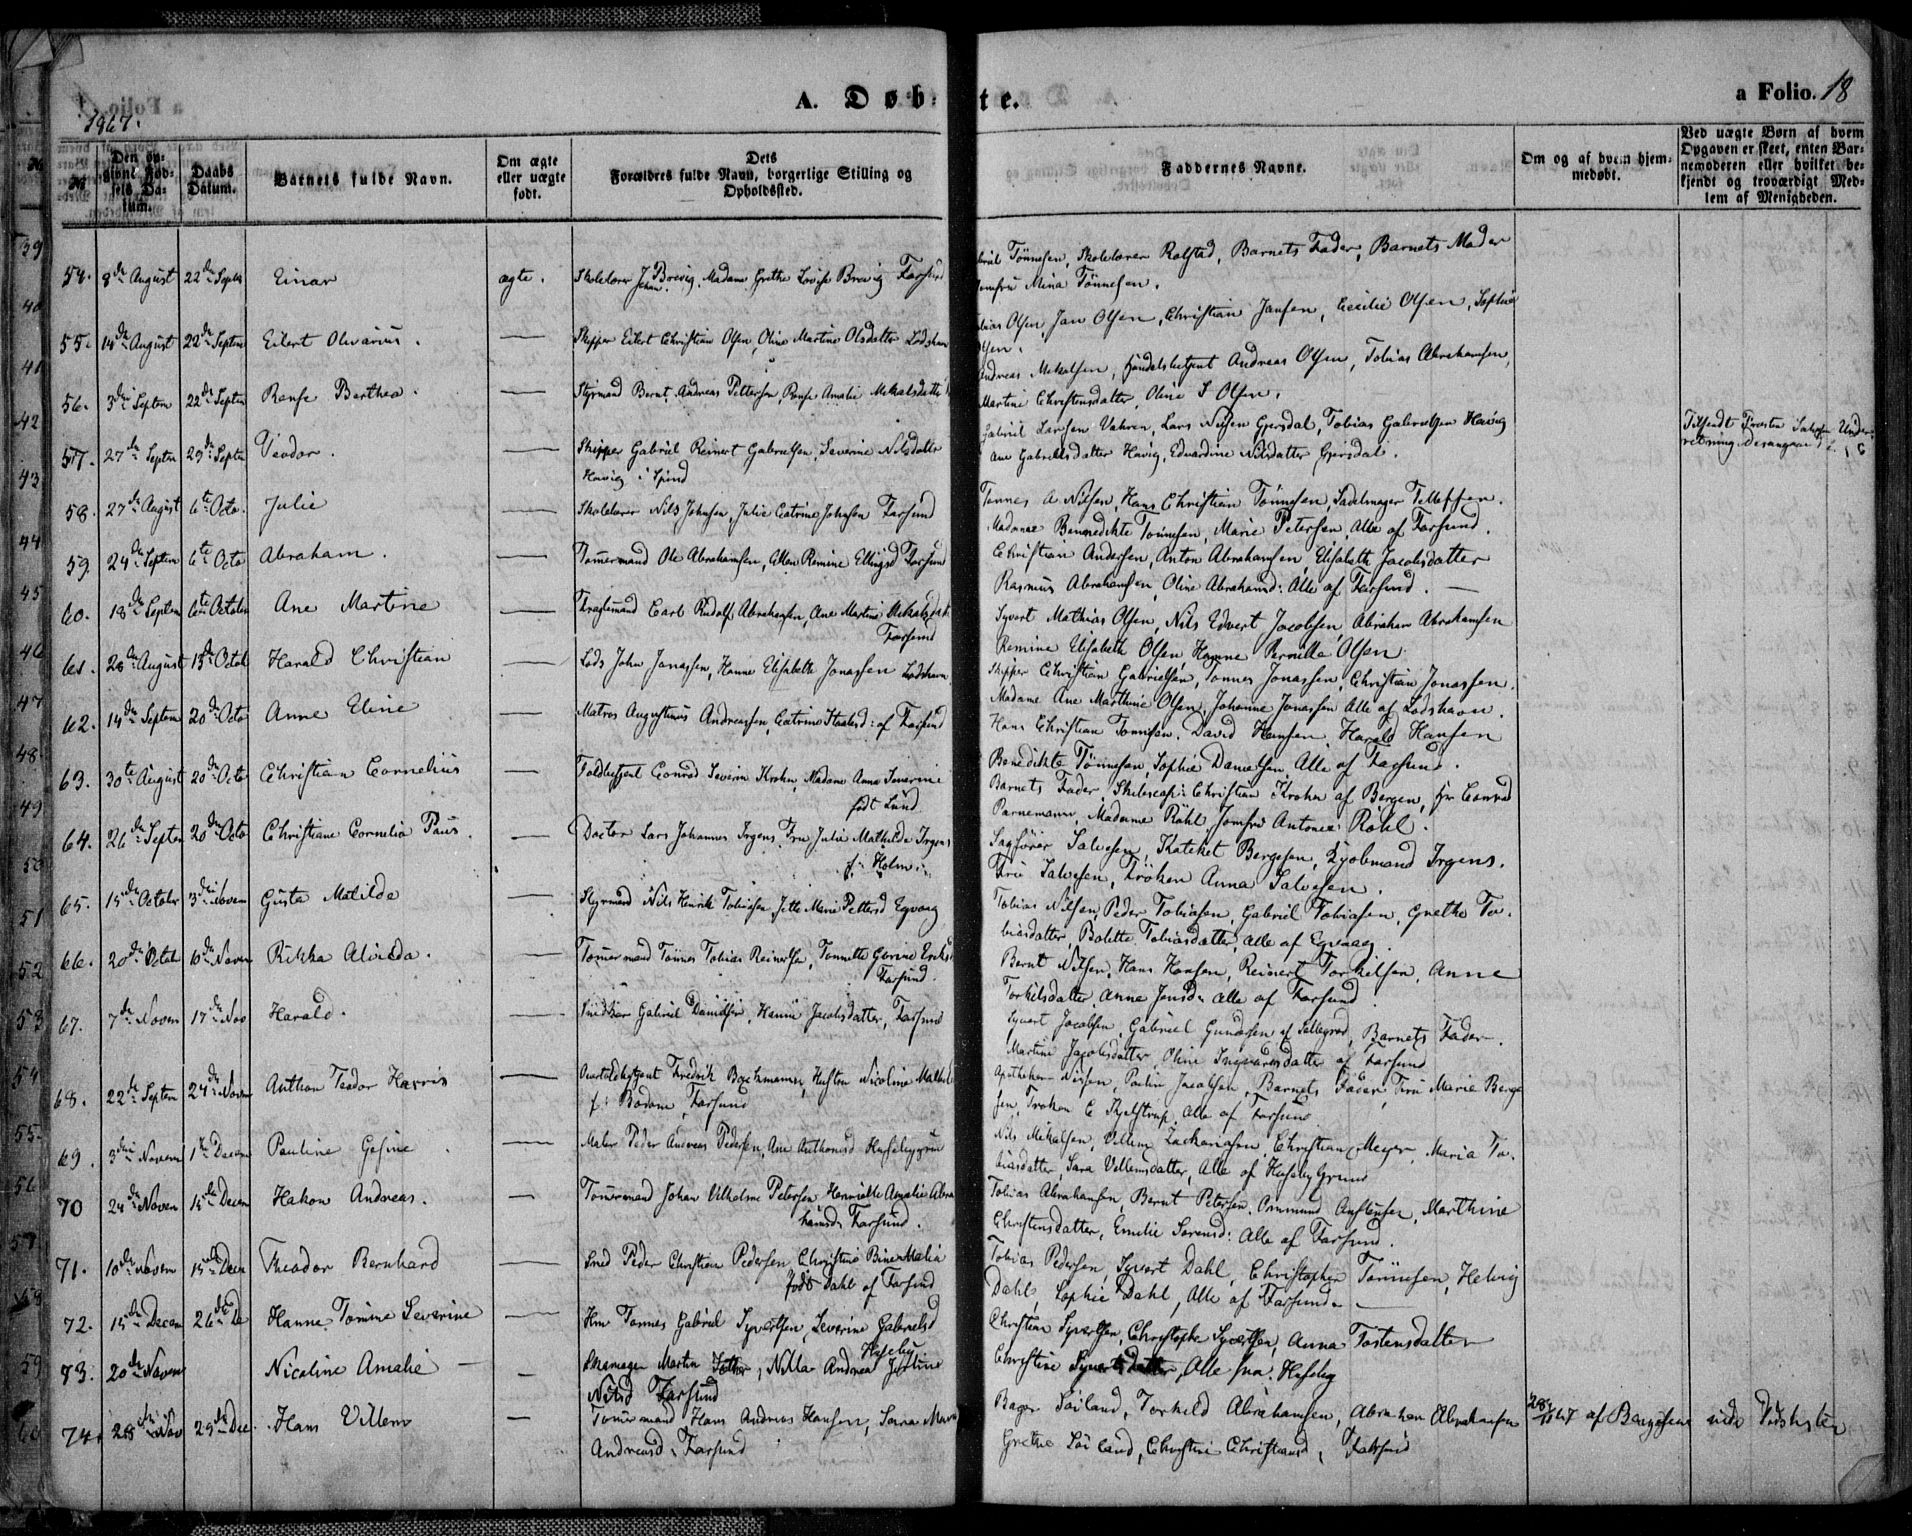 1867.
A. Døbte.
a Folio. 18
No
Den op-
givne Fød-
sels Da-
tum.
Daabs
Datum.
Barnets fulde Navn.
Om ægte
eller uægte
født.
Dets
Forældres fulde Navn, borgerlige Stilling og
Opholdssted.
Faddernes Navne.
Om og af hvem hjem-
medøbt.
Ved uægte Børn af hvem
Opgaven er skeet, enten Bar-
nemoderen eller hvilket be-
kjendt og troværdigt Med-
lem af Menigheden.
54. 8de August 22de Septbr Einar ægte. Skolelærer J. Brevig, Madam Grethe Lovise Brevig Farsund
Johan
Tønnesen, Skolelærer Rolstad, Barnets Fader, Barnets Moder
Jomfru Mina Tønnesen.
55. 14de August 22de Septem Eilert Olivarius. — Skipper Eilert Christian Olsen, Oline Martine Olsdatter Lodshavn
Tobias Olsen Jan Olsen, Christian Jansen, Cecilie Olsen, Sophie
Olsen.
56. 3die Septem 22de Septem Rense Barthea. — Styrmand Bernt Andreas Pettersen, Rense Amalie Mekalsdatter
Andreas Mekalsen, Handelsbetjent Andreas Olsen, Tobias Abrahamsen,
Martine Christensdatter, Oline S Olsen.
57. 27de Septem 29de Septem Teodor. — Skipper Gabriel Reinert Gabrielsen, Severine Nilsdatter
Havig i Spind
Gabriel Larsen Vahren, Lars Nilsen Gjersdal, Tobias Gabrielsen Havig
Ane Gabrielsdatter Havig, Edvardine Nilsdatter Gjersdal.
58. 27de August 6te Octo. Julie — Skolelærer Nils Johnsen, Julie Catrine Johnsen Farsund
Tønnes A Nilsen, Hans Christian Tønnesen, Sadelmager Tellefsen.
Madamme Bennedikte Tønnesen, Marie Petersen, Alle af Farsund.
59. 24de Septem 6te Octo Abraham. — Tømermand Ole Abrahamsen, Ellen Remine Ellingsd Farsund
Christian Andersen, Anton Abrahamsen, Elisabeth Jacobsdatter
Rasmus Abrahamsen, Oline Abrahamsd: Alle af Farsund. —
60. 18de Septem 6te October Ane Martine — Carl Rudolf Abrahamsen, Ane Martine Mekalsdatt
Farsund
Syvert Mathias Olsen, Nils Edvert Jacobsen, Abraham Abrahamsen
Remine Elisabeth Olsen, Hanne Pernille Olsen
61. 28de August 13de Octob Harald Christian — Lods John Jonassen, Hanne Elisabeth Jonassen Lodshavn
Skipper Christian Gabrielsen, Tønnes Jonassen, Christian Jonassen.
Madame Ane Marthine Olsen, Johanne Jonassen Alle af Lodshavn.
62. 14de Septem 20de Octo Anne Eline — Matros Augustinus Andreassen, Catrine af Farsund
Hans Christian Tønnesen, David Hansen, Harald Hansen
Benedikte Tønnesen, Sophie Danielsen, Alle af Farsund.
63. 30te August 20de Octo Christian Cornelius — Toldbetjent Conrad Severin Krohn, Madam Anne Severine
født Lund
Barnets Fader, Christian Krohn af Bergen, Hr Conrad
Parnemann, Madame Röhl, Jomfru Antonie Röhl.
64. 26de Septem 20de Octo Christiane Cornelia Paus. — Doctor Lars Johannes Irgens, Fru Julie Mathilde Irgens
f: Holm
Sagfører Salvesen, Kateket Bergesen, Kjøbmand Irgens.
Fru Salvesen, Frøken Anna Salvesen.
65. 15de October 3die Novem Gusta Matilde — Styrmand Nils Henrik Tobiassen, Jette Marie Pettersd Egvaag
Tobias Nilsen, Peder Tobiasen, Gabriel Tobiasen, Grethe To-
biasdatter, Bolette Tobiasdatter, Alle af Egvaag.
66. 20de Octob 10de Novem Rikka Alvilda. — Tømermand Tønnes Tobias Reinertsen, Tonnette Gurine Eriksd
Farsund.
Bernt Nilsen, Hans Hansen, Reinert Torkilsen, Anne
Torkilsdatter, Anne Jensd: Alle af Farsund
67. 7de Novem 17de Nov Harald. — Snedker Gabriel Danielsen, Hanne Jacobsdatter, Farsund
Syvert Jacobsen, Gabriel Gundersen af, Barnets Fader.
Martine Jacobsdatter, Oline Ingvarsdatter af Farsund
68. 22de Septem 24de Novem Anthon Teodor Harris — Fredrik Bochmann, Hustru Nicoline Mathilde
f: Bodom, Farsund
Apotheker Nissen, Poulin Jacobsen, Barnets Fader, Fru Marie Berge-
sen, Frøken C Kjelstrup, Alle af Farsund
69. 3die Novem 1te Decem Pauline Gesine. — Maler Peder Andreas Pedersen, Ane Anthonisd Huseby
Nils Mikalsen, Villem Zachariasen, Christian Meyer, Maria To-
biasdatter, Sara Villemsdatter, Alle af Huseby Grund
70 24de Novem 15de Decem Hakon Andreas. — Tømermand Johan Vilhelm Petersen Henriette Amalie Abra-
hamsd: Farsund.
Tobias Abrahamsen, Bernt Petersen, Ommund Austensen, Marthine
Christensdatter, Emilie Sørensd: Alle af Farsund.
71. 10de Novem 15de Decem Theodor Bernhard — Smed Peder Christian Pedersen, Christine Bine Malia
født Dahl af Farsund
Tobias Pedersen, Syvert Dahl, Christopher Tønnesen, Helvig
Dahl, Sophie Dahl, Alle af Farsund. —
72. 15de Decem 26de De Hanne Tomine Severine — Tønnes Gabriel Syvertsen, Severine Gabrielsd
Huseby
Christian Syvertsen, Christopher Syvertsen, Anna Tostensdatter
Christine Syvertsdatter, Alle fra Huseby
73. 20de Novem Nicoline Amalie — Skomager Martin, Nilla Andrea Justine
Nilsd Farsund
74. 28de Nov 29de Dec Hans Villem — Tømermand Hans Andreas Hansen, Sara Marie
Andreasd: Farsund
Bager Søiland, Torkild Abrahamsen, Abraham Abrahamsen
Grethe Søiland, Christine Christiansd, Farsund
af Bergesen
Tilsendt Præsten Under-
retning desangaaende